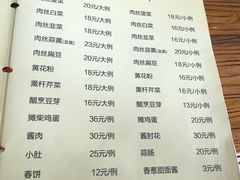 肉丝菠菜 20元/大例 肉丝菠菜 18元/小例
肉丝白菜 18元/大例 肉丝白菜 16元/小例
肉丝韭菜 18元/大例 肉丝蒜黄(韭黄) 20元/小例
肉丝蒜黄(韭黄) 23元/大例 肉丝扁豆 16元/小例
肉丝扁豆 20元/大例 黄花粉 18元/小例
黄花粉 20元/大例 熏杆芹菜 16元/小例
熏杆芹菜 18元/大例 醋烹豆芽 13元/小例
醋烹豆芽 16元/大例 摊鸡蛋 20元/小例
摊柴鸡蛋 36元/例 酱肘花 30元/例
酱肉 30元/例 蒜肠 20元/例
小肚 25元/例 香葱甜面酱 3元/例
春饼 12元/例